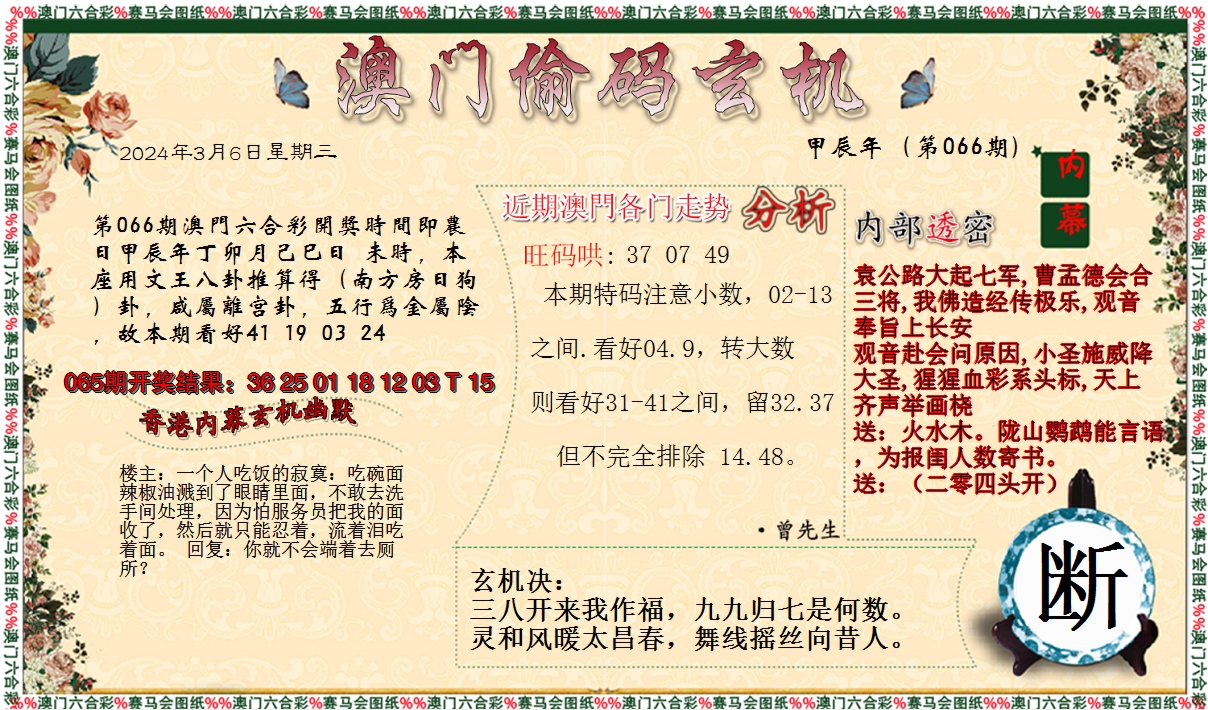 %%澳门六合彩%赛马会图纸%%澳门六合彩%赛马会图纸%%澳门六合彩%赛马会图纸%%澳门六合彩%赛马会图纸%%澳门六合彩%赛马会图纸%%澳门六合彩%赛马会图纸%%
澳门偷码玄机
2024年3月6日星期三
甲辰年（第066期）
内幕
第066期澳門六合彩開獎時間即農
日甲辰年丁卯月己巳日 未時，本
座用文王八卦推算得（南方房日狗
）卦，咸屬離宫卦，五行爲金屬陰
，故本期看好41 19 03 24
065期开奖结果：36 25 01 18 12 03 T 15
香港内幕玄机幽默
楼主：一个人吃饭的寂寞：吃碗面
辣椒油溅到了眼睛里面，不敢去洗
手间处理，因为怕服务员把我的面
收了，然后就只能忍着，流着泪吃
着面。 回复：你就不会端着去厕
所？
近期澳門各门走势 分析
旺码哄: 37 07 49
本期特码注意小数，02-13
之间.看好04.9，转大数
则看好31-41之间，留32.37
但不完全排除 14.48。
·曾先生
内部透密
袁公路大起七军,曹孟德会合
三将,我佛造经传极乐,观音
奉旨上长安
观音赴会问原因,小圣施威降
大圣,猩猩血彩系头标,天上
齐声举画桡
送：火水木。陇山鹦鹉能言语
，为报闺人数寄书。
送：（二零四头开）
玄机决：
三八开来我作福，九九归七是何数。
灵和风暖太昌春，舞线摇丝向昔人。
断
%%澳门六合彩%赛马会图纸%%澳门六合彩%赛马会图纸%%澳门六合彩%赛马会图纸%%澳门六合彩%赛马会图纸%%澳门六合彩%赛马会图纸%%澳门六合彩%赛马会图纸%%